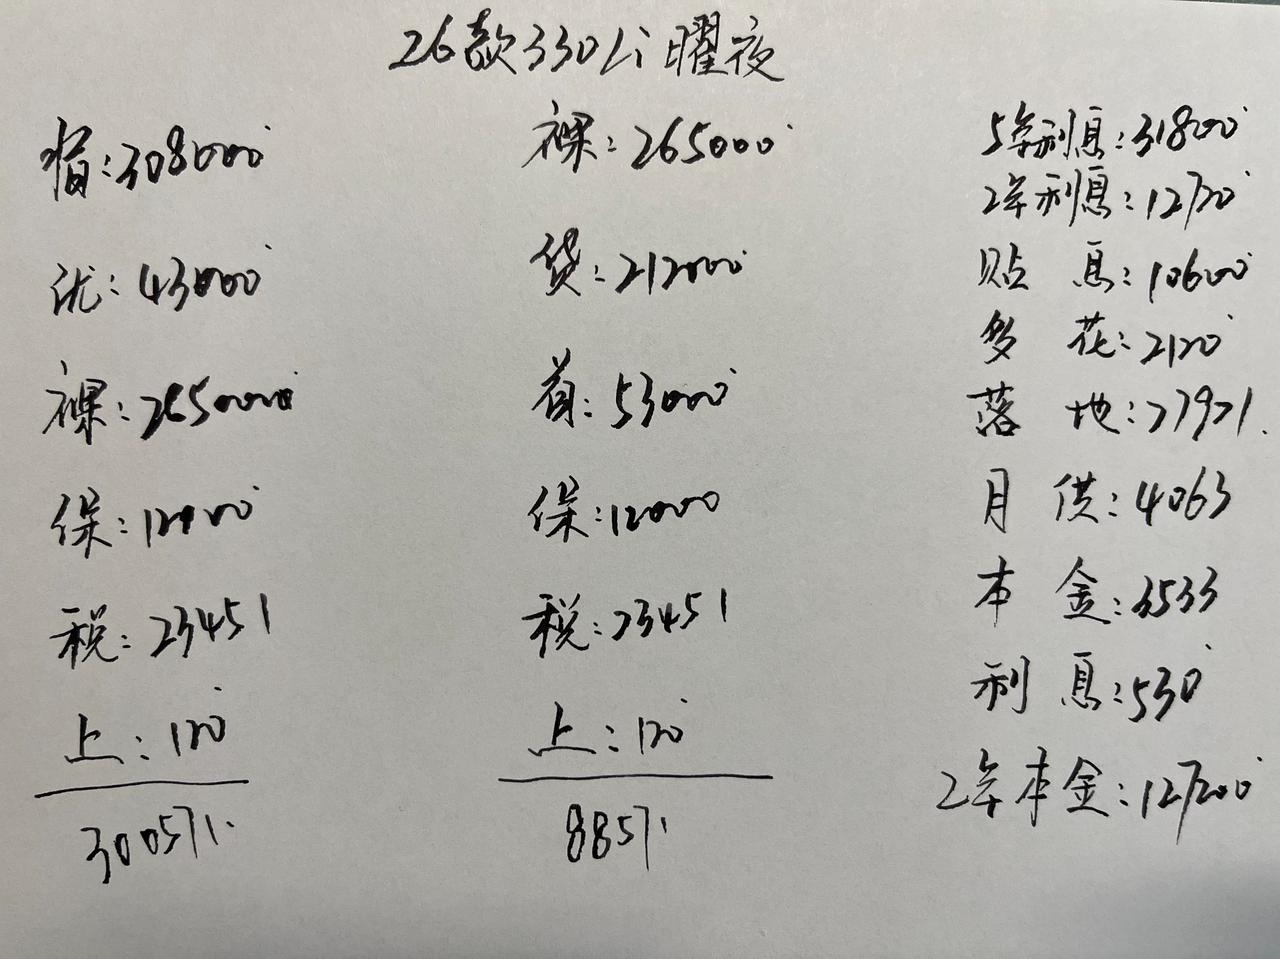 26款330Li曜夜
指:308000
优:43000
裸:265000
保:12000
税:23451
上:120
300571.
裸:265000
贷:212000
首:53000
保:12000
税:23451
上:120
88571.
5年利息:31800
2年利息:12720
贴 息:10600
多 花:2120
落 地:77971.
月 供:4063
本 金:3533
利 息:530
2年本金:127200